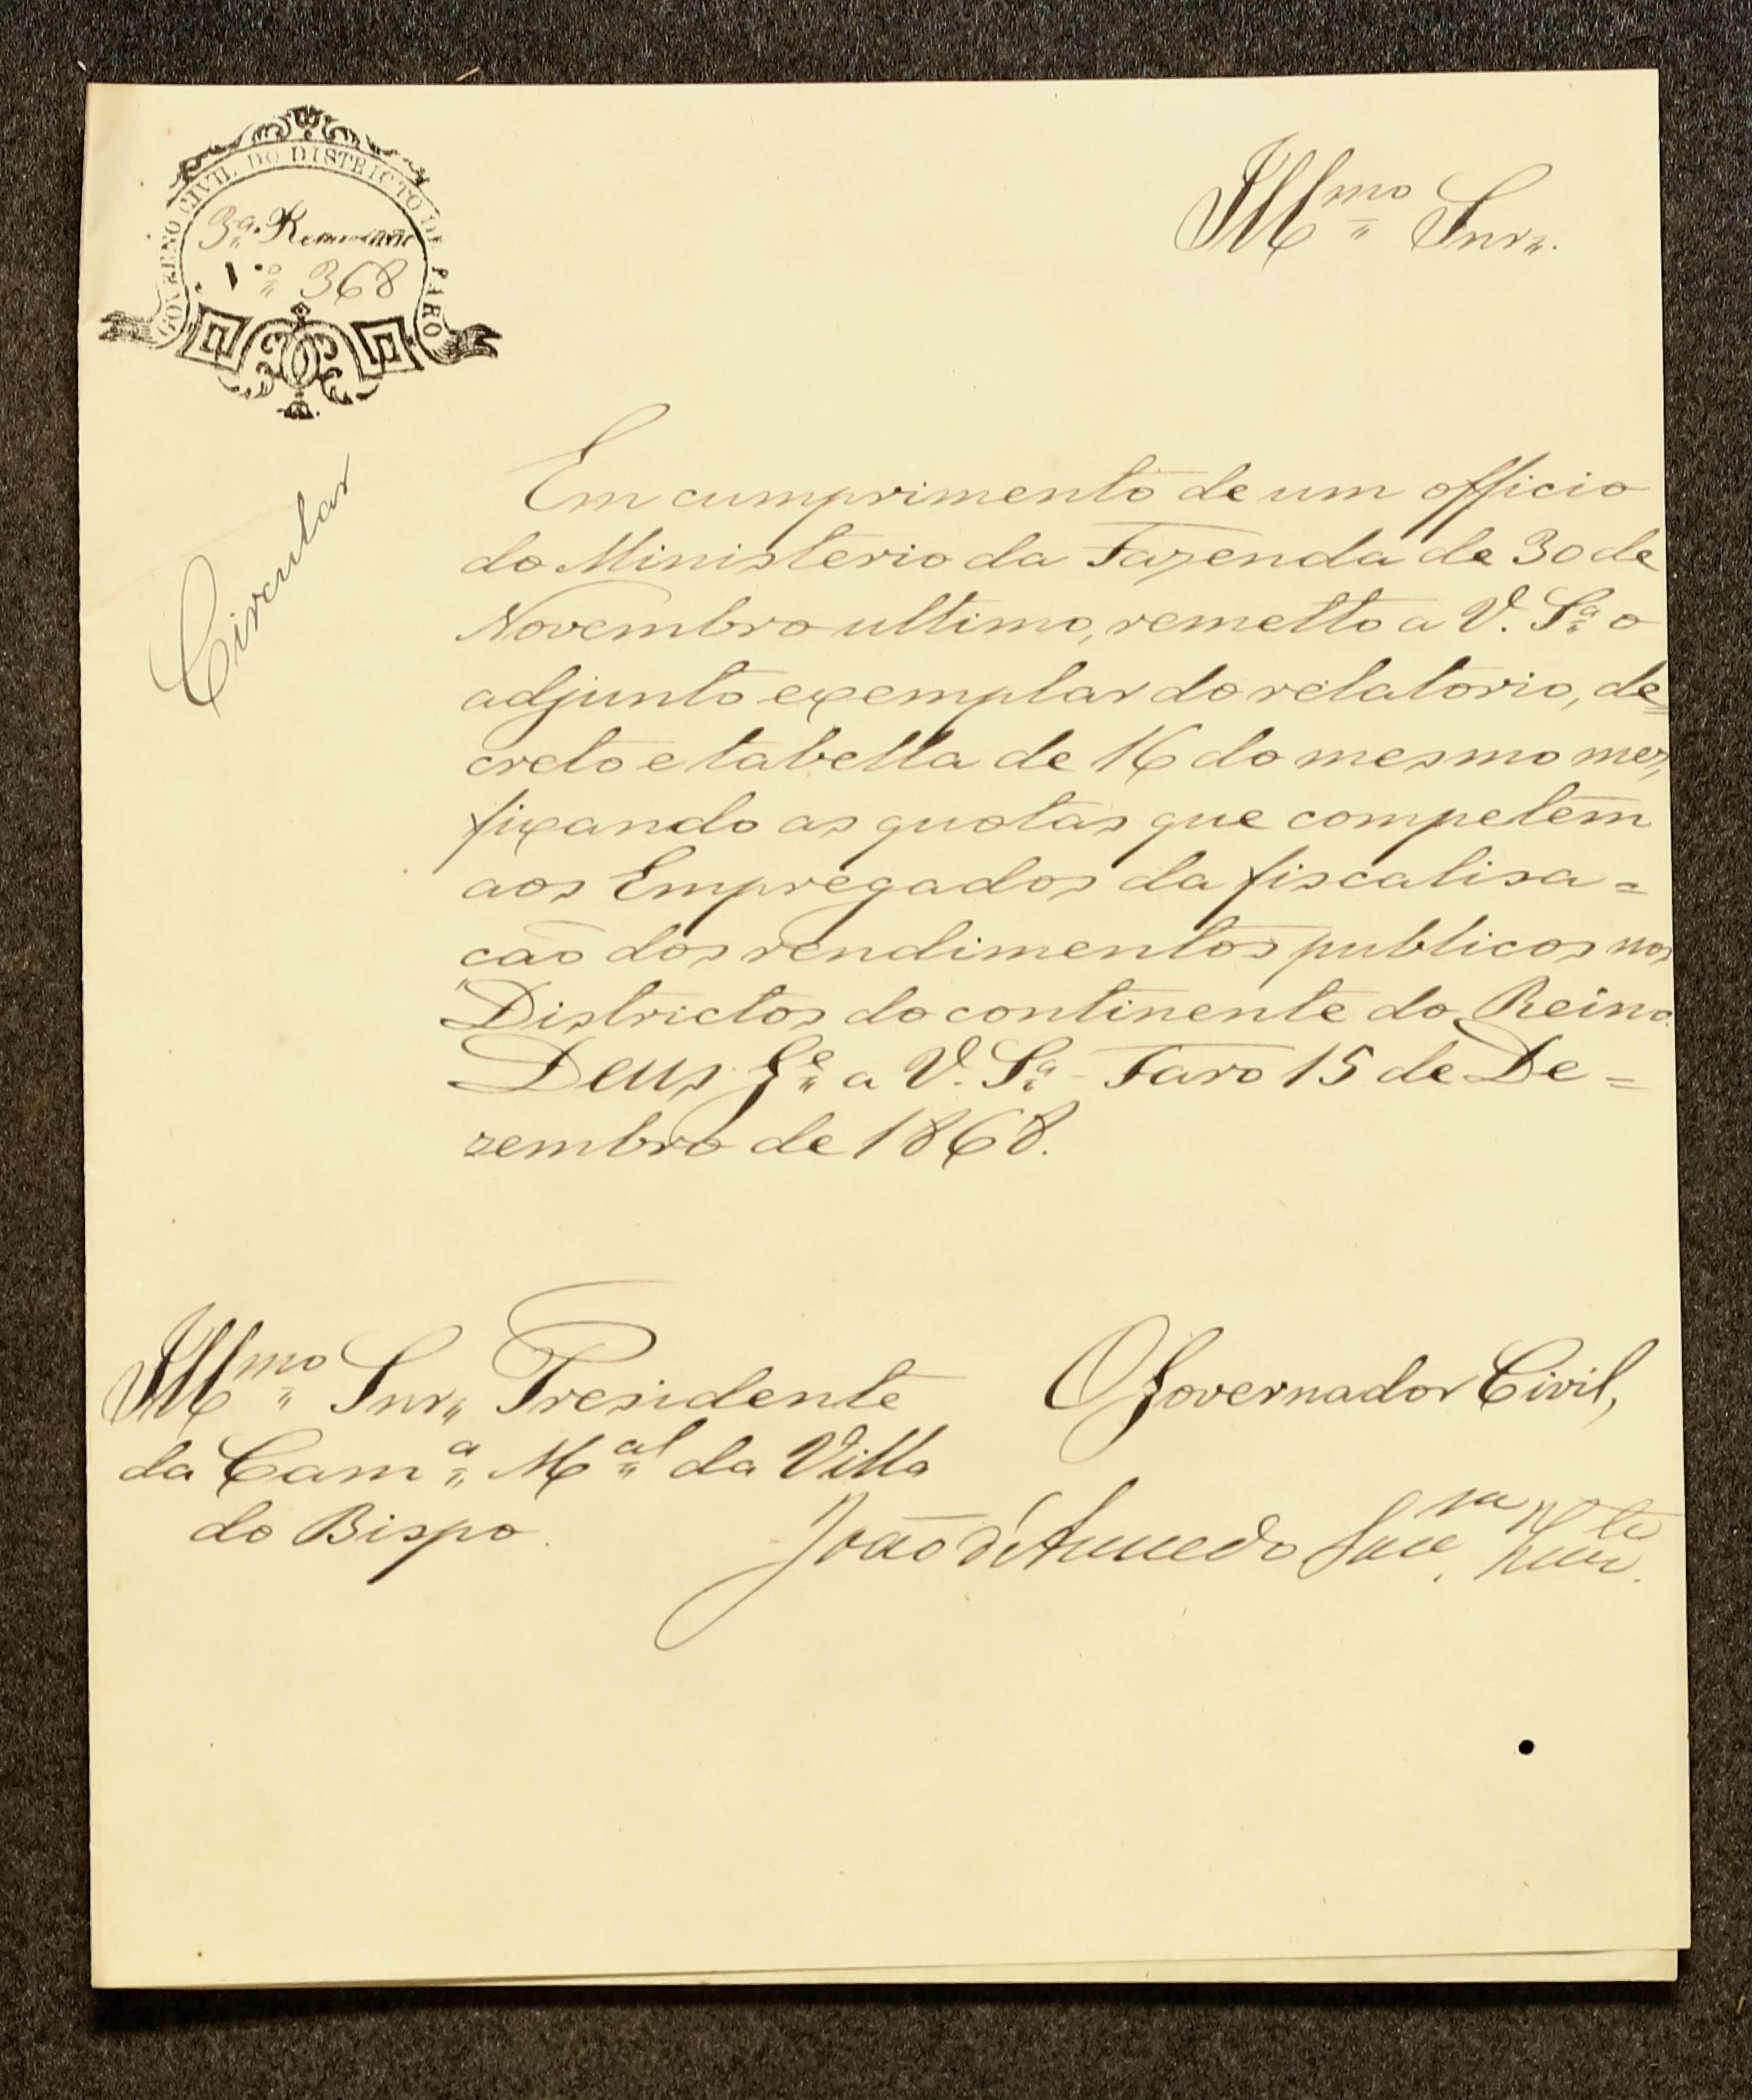 GOVERNO CIVIL DO DISTRICTO DE FARO
3.ª
N.º 368
Illmo Snr.
Circular
Em cumprimento de um officio
do Ministerio da Fazenda de 30 de
Novembro ultimo, remetto a V. Sª o
adjunto exemplar do relatorio, de=
creto e tabella de 16 do mesmo mez,
fixando as quotas que competem
aos Empregados da fiscalisa=
cão dos rendimentos publicos nos
Districtos do continente do Reino.
Deus Ge a V. Sª - Faro 15 de De=
zembro de 1868.
Illmo Snr. Presidente
da Camª Mal da Villa
do Bispo.
O Governador Civil,
João d'